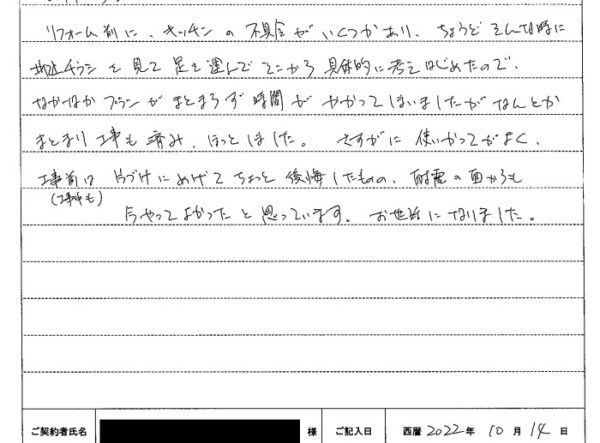 リフォーム前に、キッチンの不具合がいくつかあり、ちょうどそんな時に
地チラシを見て足を運んでそこから具体的に考えはじめたので、
なかなかプランがまとまらず時間がかかってしまいましたがなんとか
まとまり工事も済み、ほっとしました。 さすがに使いかってがよく、
工事前は片づけにめげてちょっと後悔したものの、耐震の面からも
(工事中も)
今やってよかったと思っています。お世話になりました。
ご契約者氏名 様 ご記入日 西暦 2022年 10月 14日